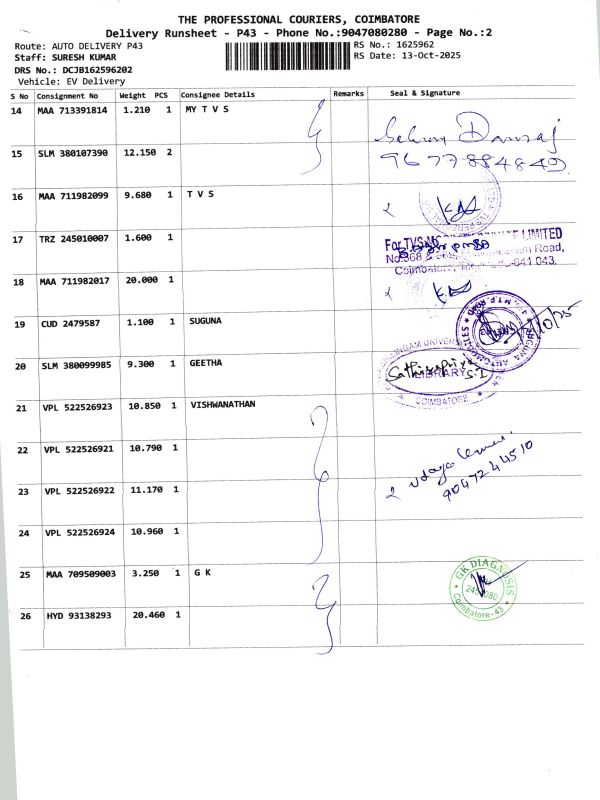 THE PROFESSIONAL COURIERS, COIMBATORE
Delivery Runsheet - P43 - Phone No.:9047080280 - Page No.:2
Route: AUTO DELIVERY P43
RS No.: 1625962
Staff: SURESH KUMAR
RS Date: 13-Oct-2025
DRS No.: DCJB162596202
Vehicle: EV Delivery
S No Consignment No Weight PCS Consignee Details Remarks Seal & Signature
14 MAA 713391814 1.210 1 MY T V S
15 SLM 380107390 12.150 2
9677884849
16 MAA 711982099 9.680 1 T V S
17 TRZ 245010007 1.600 1
For TVS LIMITED
Road,
Coimbatore 641 043.
18 MAA 711982017 20.000 1
19 CUD 2479587 1.100 1 SUGUNA
20 SLM 380099985 9.300 1 GEETHA
LIBRARY
COIMBATORE
21 VPL 522526923 10.850 1 VISHWANATHAN
22 VPL 522526921 10.790 1
9047244510
23 VPL 522526922 11.170 1
24 VPL 522526924 10.960 1
25 MAA 709509003 3.250 1 G K
GK DIAGNOSIS
Coimbatore-43
26 HYD 93138293 20.460 1